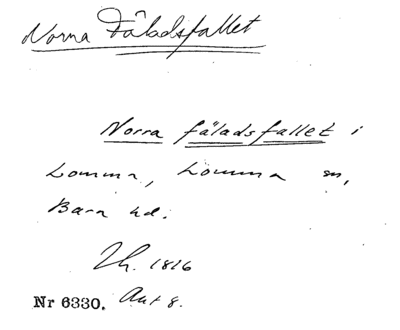 Norra Fäladsfallet
Norra fäladsfallet i
Lomma, Lomma sn,
Bara hd.
Th. 1816
Nr 6330. Akt 8.